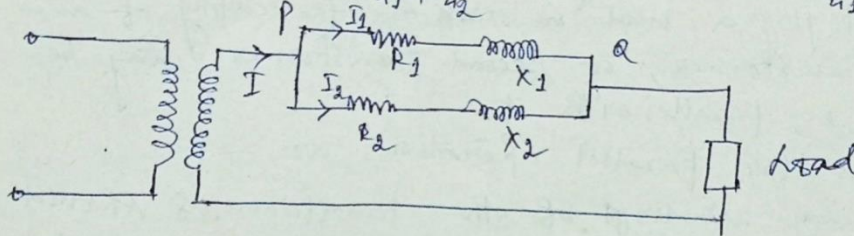 P I₁ R₁ X₁ Q
I I₂ R₂ X₂
Load